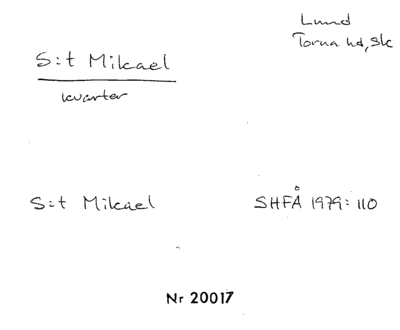 Lund
Torna hd, Sk
S:t Mikael
kvarter
S:t Mikael SHFÅ 1979:110
Nr 20017